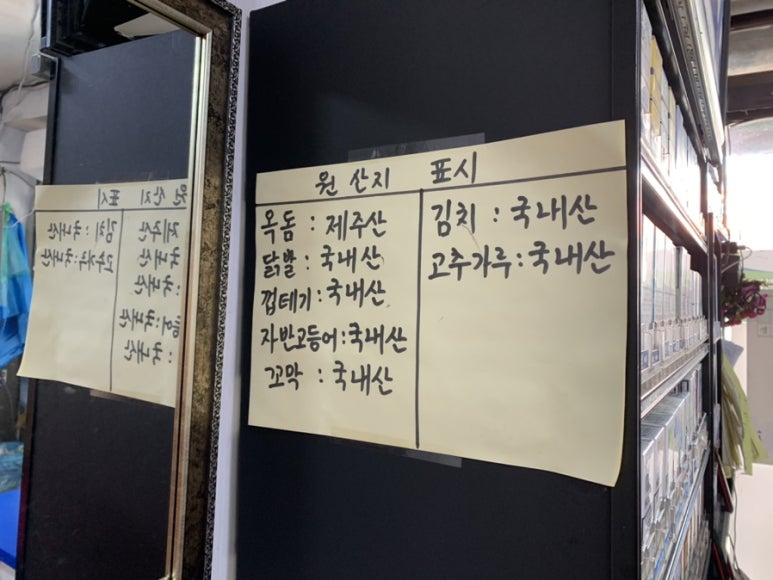 원산지 표시
옥돔 : 제주산
닭발 : 국내산
껍테기 : 국내산
자반고등어 : 국내산
꼬막 : 국내산
김치 : 국내산
고추가루 : 국내산